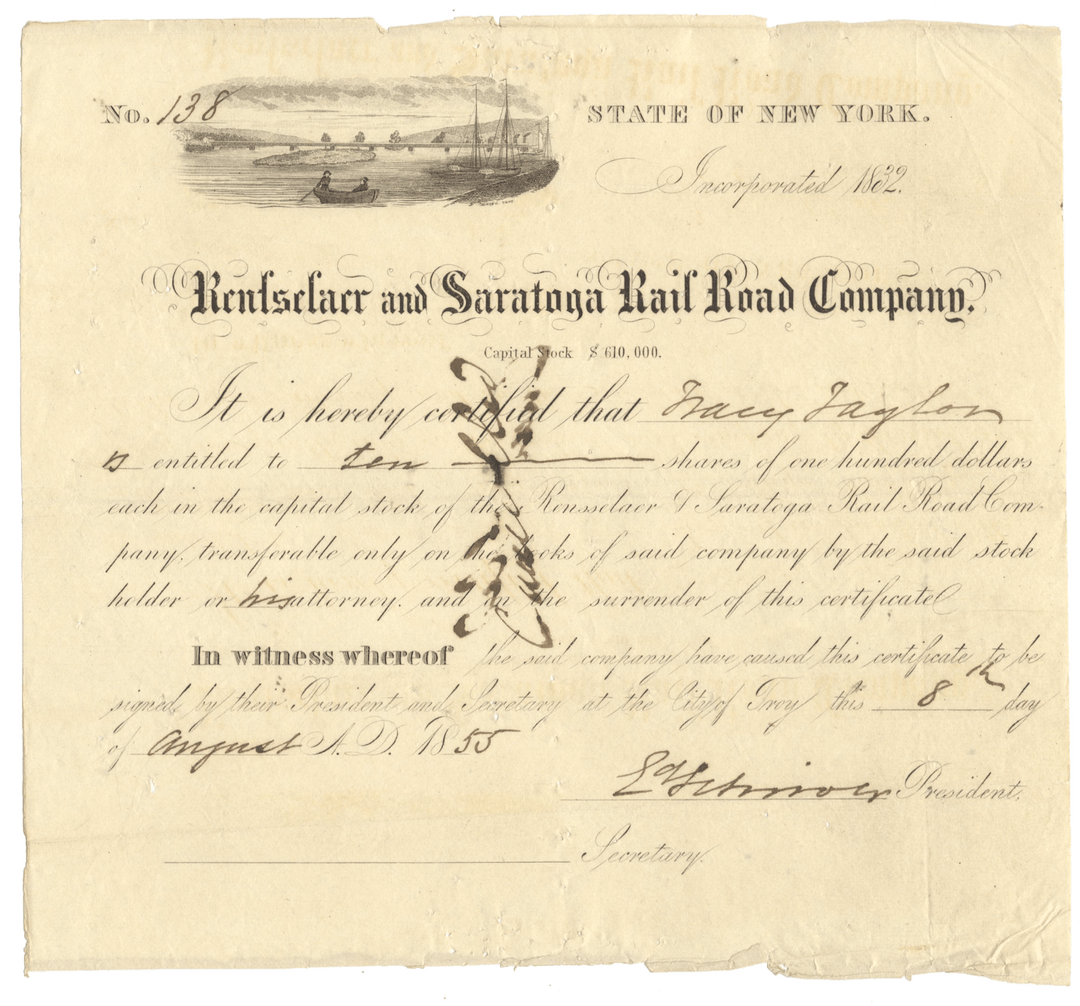 No. 138
STATE OF NEW YORK.
Incorporated 1832.
Rensselaer and Saratoga Rail Road Company.
Capital Stock $ 610,000.
It is hereby certified that Tracy Taylor
is entitled to ten shares of one hundred dollars
each in the capital stock of the Rensselaer & Saratoga Rail Road Com-
pany. transferable only on the books of said company by the said stock
holder or his attorney. and on the surrender of this certificate
In witness whereof the said company have caused this certificate to be
signed by their President and Secretary at the City of Troy this 8th day
of August A. D. 1855
President.
Secretary.